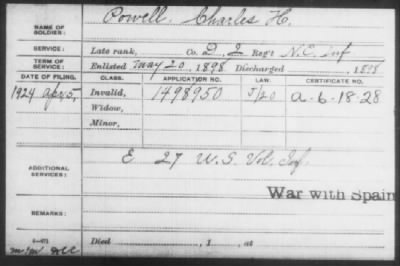 NAME OF SOLDIER: Powell, Charles H.
SERVICE: Late rank, Co. D, 2 Reg't N.C. Inf
TERM OF SERVICE: Enlisted May 20, 1898 Discharged , 1898
DATE OF FILING. CLASS. APPLICATION NO. LAW. CERTIFICATE NO.
1924 Apr 5, Invalid, 1498950 5/20 A-6-18-28
Widow,
Minor,
ADDITIONAL SERVICES: E 27 U.S. Vol. Inf.
War with Spain
REMARKS:
Died , 1 , at